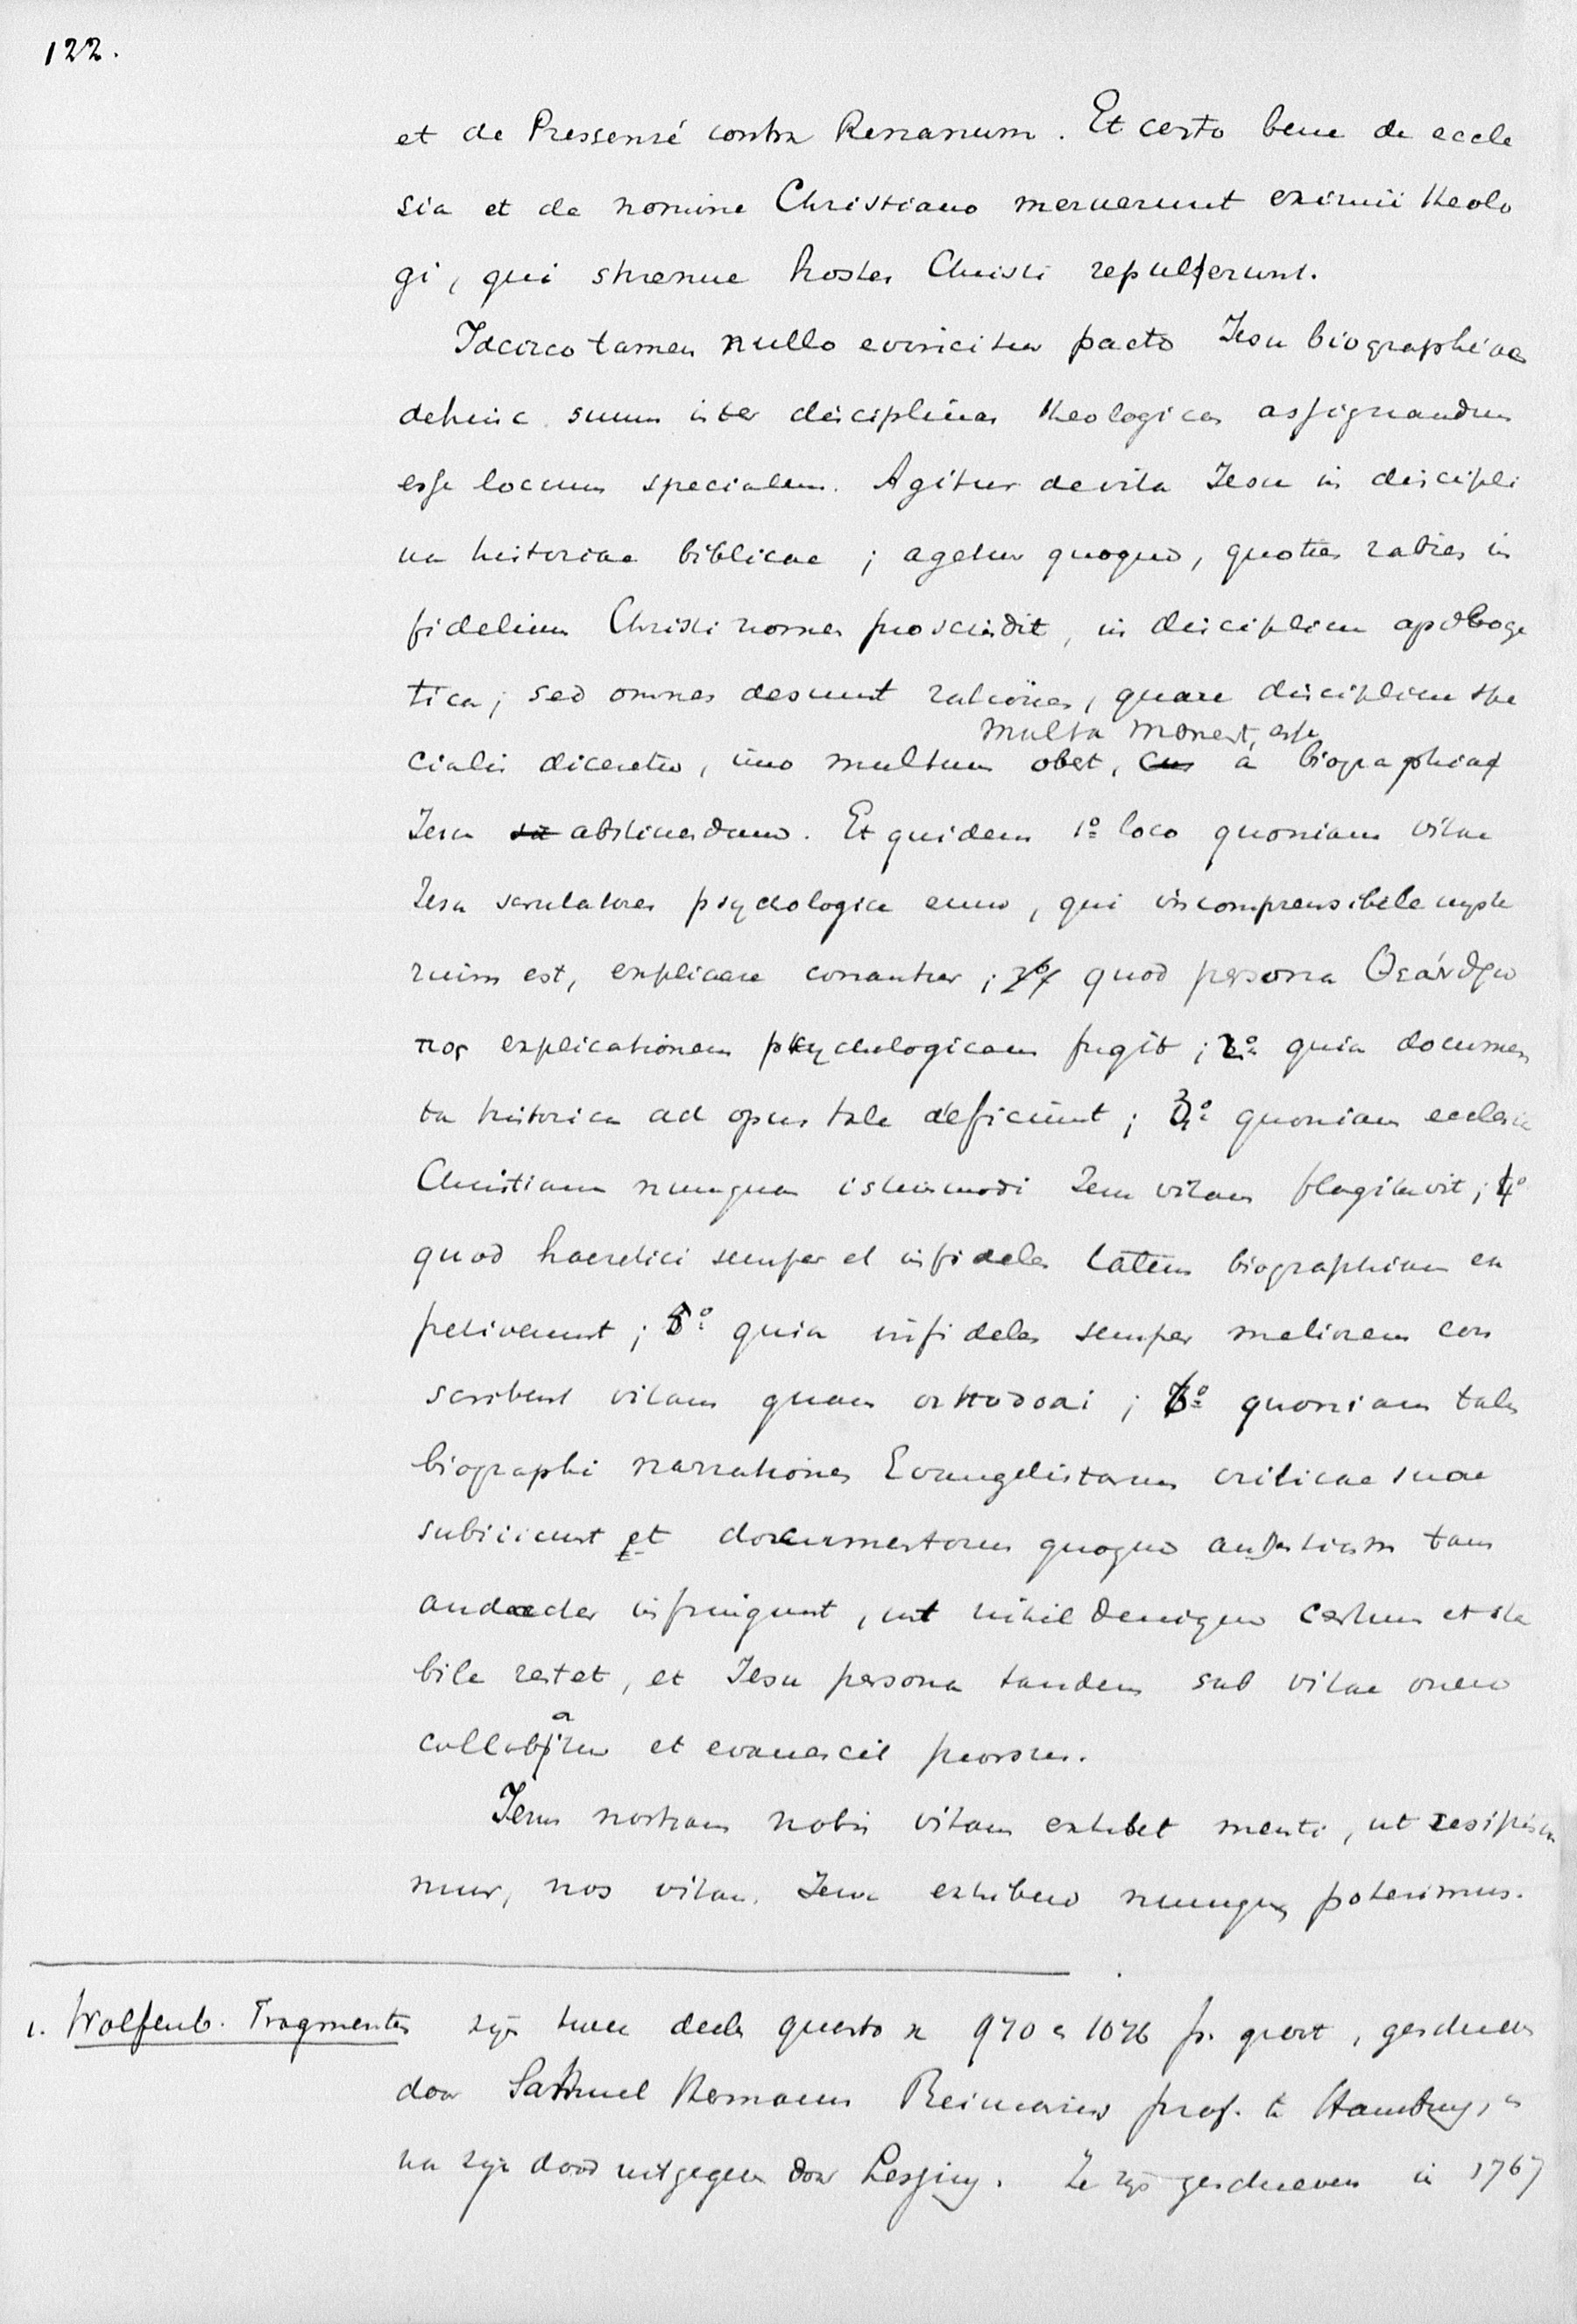 122.
et de Pressensé contra Renanum. Et certo bene de eccle
sia et de nomine Christiano meruerunt eximii theolo
gi, qui strenue hostes Christi repulserunt.
Idcirco tamen nullo evincitur pacto Jesu biographiae
dehinc suum inter disciplinas theologicas assignandum
esse locum specialem. Agitur de vita Jesu in discipli
na historiae biblicae; agetur quoque, quoties rabies in
fidelium Christi nomen proscindit, in disciplina apologe
tica; sed omnes desunt rationes, quare disciplina spe
multa monent, esse
cialis diceretur, imo multum obest, cur a biographia
Jesu sit abstinendum. Et quidem 1º loco quoniam vitae
Jesu scrutatores psychologice eum, qui incomprensibele myste
rium est, explicare conantur; 2º quod persona Θεάνθρω
πος explicationem psychologicam fugit; 2º quia documen
ta historica ad opus tale deficiunt; 3º quoniam ecclesia
Christiana nunquam istiusmodi Jesu vitam flagitavit; 4º
quod haeretici semper et infideles talem biographiam ex
petiverunt; 5º quia infideles semper meliorem con
scribent vitam quam orthodoxi; 6º quoniam tales
biographi narrationes Evangelistarum criticae suae
subiiciunt et documentorum quoque
audacter infringunt, ut nihil denique certum et sta
bile restet, et Jesu persona tandem sub vitae onere
a
collabitur et evanescit prorsus.
Jesus nostram nobis vitam exhibet menti, ut resipisca
mur, nos vitam Jesu exhibere nunquam poterimus.
1. Wolfenb. Fragmenten zijn twee deelen quarto v 970 e 1076 p. groot, geschreven
door Samuel Hermann Reimarus prof. te Hamburg, en
na zijn dood uitgegeven door Lessing. Ze zijn geschreven in 1767